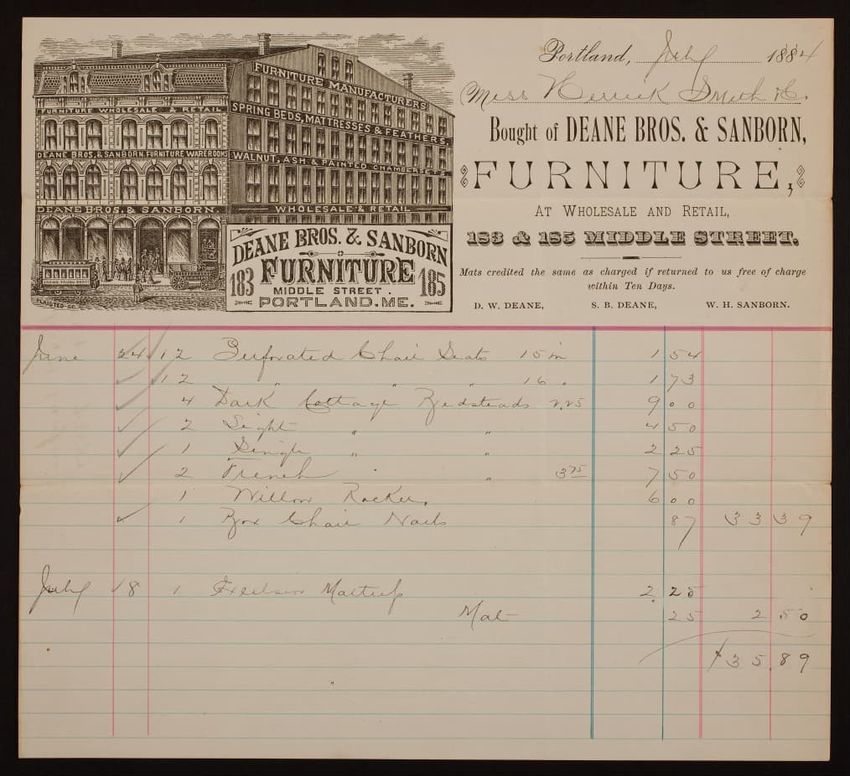 FURNITURE MANUFACTURERS
FURNITURE WHOLESALE & RETAIL
SPRING BEDS, MATTRESSES & FEATHERS.
DEANE BROS. & SANBORN. FURNITURE WAREROOMS
WALNUT, ASH & PAINTED CHAMBER SETS
DEANE BROS. & SANBORN.
WHOLESALE & RETAIL
DEANE BROS. & SANBORN
183 FURNITURE 185
MIDDLE STREET.
PORTLAND. ME.
Portland, July 1884
Mess Herrick Smith & Co.
Bought of DEANE BROS. & SANBORN,
FURNITURE,
AT WHOLESALE AND RETAIL,
183 & 185 MIDDLE STREET.
Mats credited the same as charged if returned to us free of charge
within Ten Days.
D. W. DEANE, S. B. DEANE, W. H. SANBORN.
June 24 12 Perforated Chair Seats 15 in 1 54
12 " " " 16 " 1 73
4 Dark Cottage Bedsteads 2.25 9 00
2 Light " " 4 50
1 Single " " 2 25
2 French " " 3 75 7 50
1 Willow Rocker 6 00
1 Box Chair Nails 87 33 39
July 18 1 Excelsior Mattress 2 25
Mat 25 2 50
$35.89